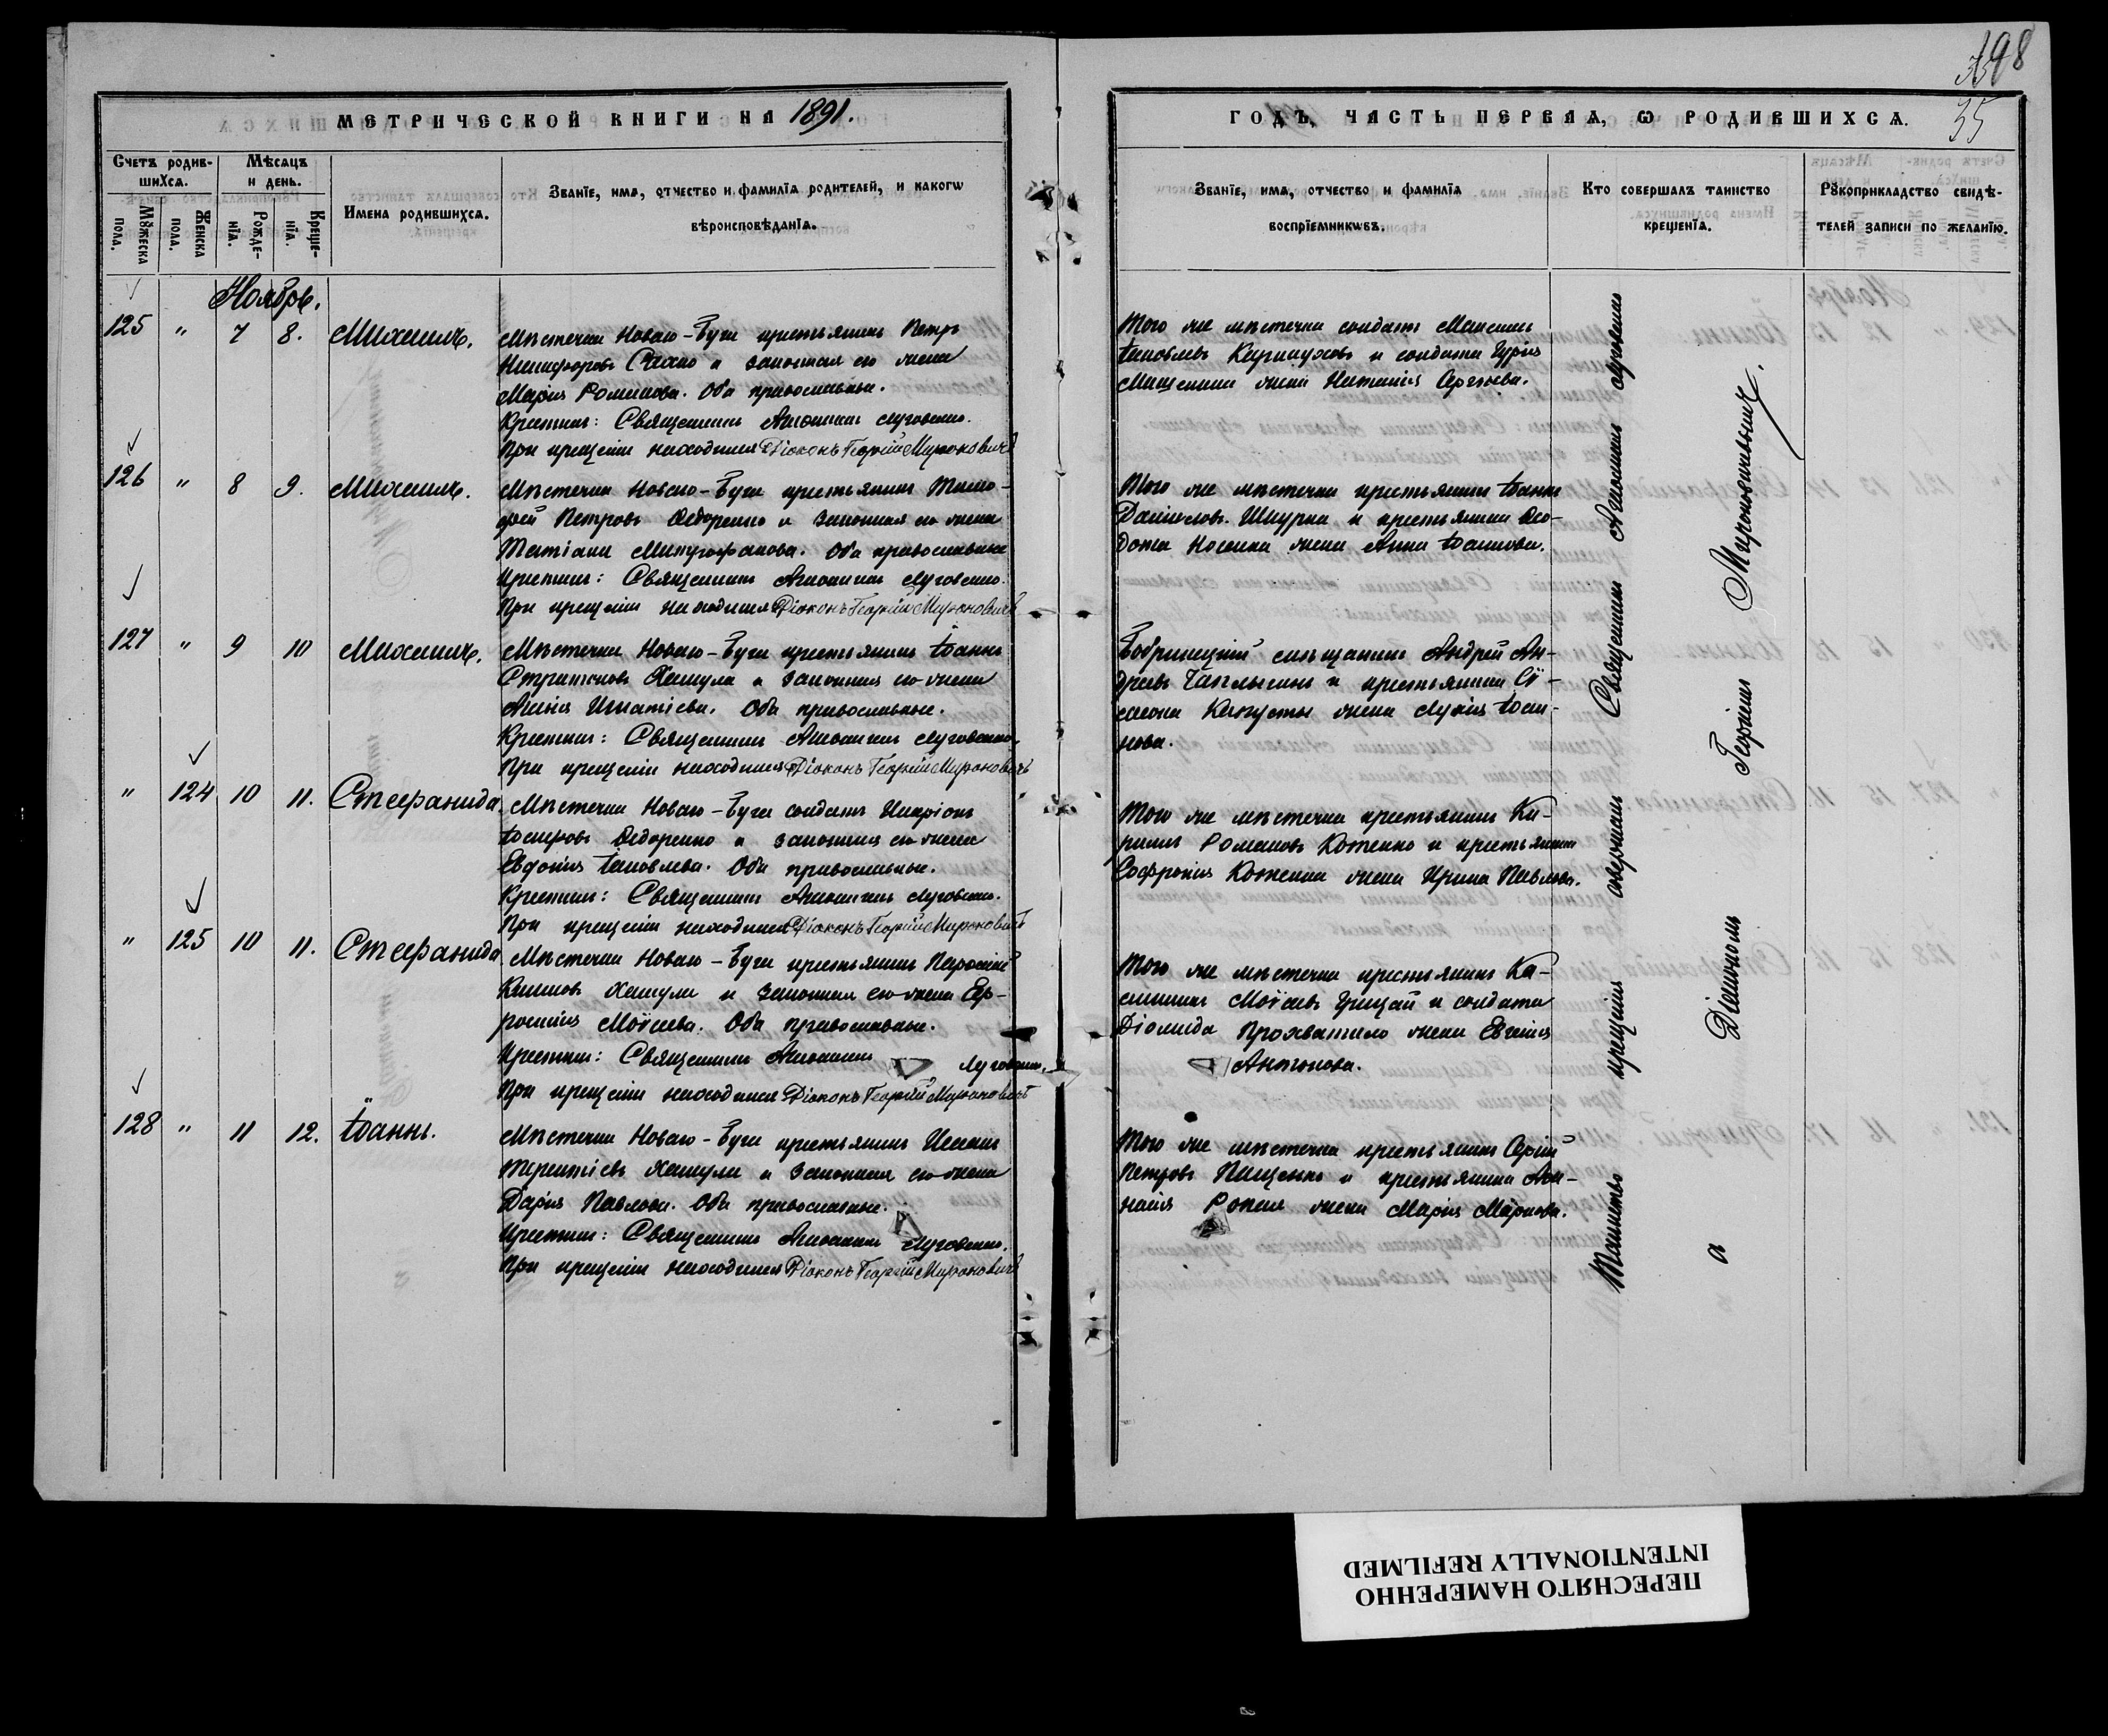 198
35
МЕТРИЧЕСКОЙ КНИГИ НА 1891.
ГОДЪ, ЧАСТЬ ПЕРВАЯ, Ѡ РОДИВШИХСѦ.
Счетъ родив-
шихсѧ.
Мѣсѧцъ
и день.
Мꙋжеска
пола.
Женска
пола.
Рожде-
нїѧ.
Креще-
нїѧ.
Имена родившихсѧ.
Званїе, имѧ, отчество и фамилїѧ родителей, и какогѡ
вѣроисповѣданїѧ.
Званїе, имѧ, отчество и фамилїѧ
воспрїемникѡвъ.
Кто совершалъ таинство
крещенїѧ.
Рꙋкоприкладство свидѣ-
телей записи по желанїю.
Ноябрь.
125 " 7 8. Михаилъ.
Мѣстечка Новаго-Буга крестьянинъ Петръ
Никифоровъ и законная его жена
Марія Романова. Оба православные.
Крестилъ: Священникъ Аѳанасій Луговенко.
При крещеніи находился Діаконъ Георгій Мироновичъ
Того же мѣстечка солдатъ Максимъ
Іаковлевъ и солдата Гурія
Мищенка жена Наталія Сергѣева.
126 " 8 9. Михаилъ.
Мѣстечка Новаго-Буга крестьянинъ Тимо-
фей Петровъ Ѳедоренко и законная его жена
Татіана Митрофанова. Оба православные
Крестилъ: Священникъ Луговенко.
При крещеніи находился Діаконъ Георгій Мироновичъ
Того же мѣстечка крестьянинъ Іоаннъ
Даниловъ Шкурка и крестьянина Ѳео-
дота Носенка жена Анна Іоаннова.
127 " 9 10 Михаилъ.
Мѣстечка Новаго-Буга крестьянинъ Іоаннъ
Хамула и законная его жена
Игнатіева. Оба православные.
Крестилъ: Священникъ Луговенко.
При крещеніи находился Діаконъ Георгій Мироновичъ
Бобринецкій мѣщанинъ Андрей Ан-
дреевъ Чаплыгинъ и крестьянина Сѵ-
меона Капусты жена Лукія Іоан-
нова.
" 124 10 11. Стефанида
Мѣстечка Новаго-Буга солдатъ Иларіонъ
Іосифовъ Ѳедоренко и законная его жена
Евдокія Іаковлева. Оба православные.
Крестилъ: Священникъ Луговенко.
При крещеніи находился Діаконъ Георгій Мироновичъ
Того же мѣстечка крестьянинъ Ки-
рилъ Романовъ Котенко и крестьянина
Софронія Котенка жена Ирина Павлова.
" 125 10 11. Стефанида
Мѣстечка Новаго-Буга крестьянинъ
Климовъ Хамула и законная его жена Еф-
росинія Моѵсеева. Оба православные.
Крестилъ: Священникъ Луговенко.
При крещеніи находился Діаконъ Георгій Мироновичъ
Того же мѣстечка крестьянинъ Ка-
Моѵсеевъ Грицай и солдата
Діомида Прохватило жена Евгенія
Антонова.
128 " 11 12. Іоаннъ.
Мѣстечка Новаго-Буга крестьянинъ
Терентіевъ Хамула и законная его жена
Дарія Павлова. Оба православные.
Крестилъ: Священникъ Луговенко.
При крещеніи находился Діаконъ Георгій Мироновичъ
Того же мѣстечка крестьянинъ Сергій
Петровъ Пащенко и крестьянина Ѳа-
жена Марія Маркова.
Таинство крещенія совершалъ Священникъ Луговенко
а Діакономъ Георгіемъ Мироновичемъ.
ПЕРЕСНЯТО НАМЕРЕННО
INTENTIONALLY REFILMED